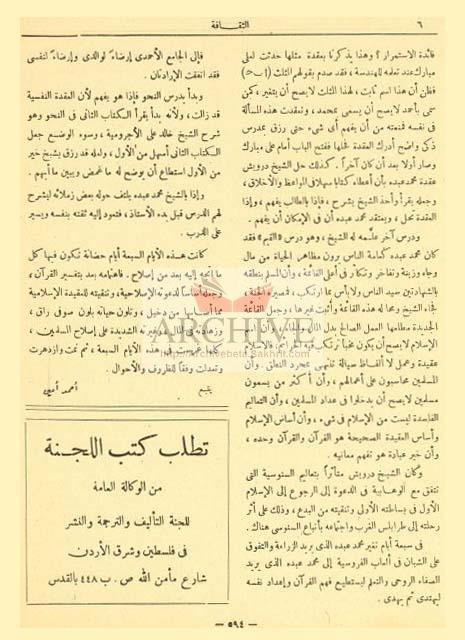 ٦
الثقافة
فائدة الاستمرار ؟ وهذا يذكرنا بعقدة مثلها حدثت لعلى
مبارك عند تعلمه للهندسة ، فقد صدم بقولهم المثلث (ا ب ح)
فظن أن هذا اسم ثابت ، لهذا المثلث لا يصح أن يتغير ، كمن
سمى بأحمد لا يصح أن يسمى بمحمد ، وتعقدت هذه المسألة
فى نفسه فمنعته من أن يفهم أى شىء حتى رزق بمدرس
ذكى واضح أدرك العقدة فحلها ففتح الباب أمام على مبارك
وصار أولا بعد أن كان آخراً . كذلك حل الشيخ درويش
عقدة محمد عبده بأن أعطاه كتابا سهلا فى المواعظ والأخلاق ،
وجعله يقرأ وأخذ الشيخ يشرح ، فإذا بالطالب يفهم ، وإذا
العقدة تحل ، ويعتقد محمد عبده أن فى الإمكان أن يفهم .
ودرس آخر علّمه له الشيخ ، وهو درس «القيم» فقد
كان محمد عبده كعامة الناس يرون مظاهر الحياة من مال
وجاه وزينة وتفاخر وتكاثر فى أعلى القائمة ، وأن المسلم بنطقه
بالشهادتين سيد الناس ولا بأس بما ارتكب ، فمصيره الجنة ،
فجاء الشيخ ومحا له هذه القائمة وأثبت غيرها ، وجعل القائمة
الجديدة مطلعها العمل الصالح
الإسلام لا يصح أن يكون
عقيدة وعمل لا ألفاظ سيالة تنتهى بمجرد النطق . وأن
المسلمين محاسبون على أعمالهم ، وأن أكثر من يسمون
المسلمين لا يصح أن يدخلوا فى عداد المسلمين ، وأن التعاليم
الفاسدة ليست من الإسلام فى شىء ، وأن أساس الإسلام
وأساس العقيدة الصحيحة هو القرآن والقرآن وحده ،
وأن خير عبادة هو تفهم معانيه .
وكان الشيخ درويش متأثراً بتعاليم السنوسية التى
تتفق مع الوهابية فى الدعوة إلى الرجوع إلى الإسلام
الأول فى بساطته الأولى وتنقيته من البدع ، وذلك على أثر
رحلته إلى طرابلس الغرب واجتماعه بأتباع السنوسى هناك .
فى سبعة أيام تغير محمد عبده الذى يريد الزراعة والتفوق
على الشبان فى ألعاب الفروسية إلى محمد عبده الذى يريد
الصفاء الروحى والتعلم ليستطيع فهم القرآن وإعداد نفسه
ليهتدى ثم يهدى .
فإلى الجامع الأحمدى إرضاء لوالدى وإرضاء لنفسى
فقد اتفقت الإرادتان .
وبدأ يدرس النحو فإذا هو يفهم لأن العقدة النفسية
قد زالت ، ولأنه بدأ يقرأ الكتاب الثانى فى النحو وهو
شرح الشيخ خالد على الأجرومية ، وسوء الوضع جعل
الكتاب الثانى أسهل من الأول ، ولعله قد رزق بشيخ خير
من الأول استطاع أن يوضح له ما غمض ويبين ما أبهم .
وإذا بالشيخ محمد عبده يلتف حوله بعض زملائه ليشرح
لهم الدرس قبل بدء الأستاذ ، فتعود إليه ثقته بنفسه ويسير
على الدرب .
كانت هذه الأيام السبعة أيام حضانة تكون فيها كل
ما اتجه إليه بعد من إصلاح . فاهتمامه بعد بتفسير القرآن ،
وجعله أساساً لدعوته الإصلاحية ، وتنقيته للعقيدة الإسلامية
مما أصابها من دخيل ، وتلون حياته بلون صوفى راق ،
وزهادته فى المال وغيرته الشديدة على إصلاح المسلمين ،
هذه الأيام السبعة ، ثم نمت وازدهرت
وتعدلت وفقاً للظروف والأحوال .
يتبع
أحمد أمين
تطلب كتب اللجنة
من الوكالة العامة
للجنة التأليف والترجمة والنشر
فى فلسطين وشرق الأردن
شارع مأمن الله ص . ب ٤٤٨ بالقدس
ARCHIVE
— ٥٩٤ —